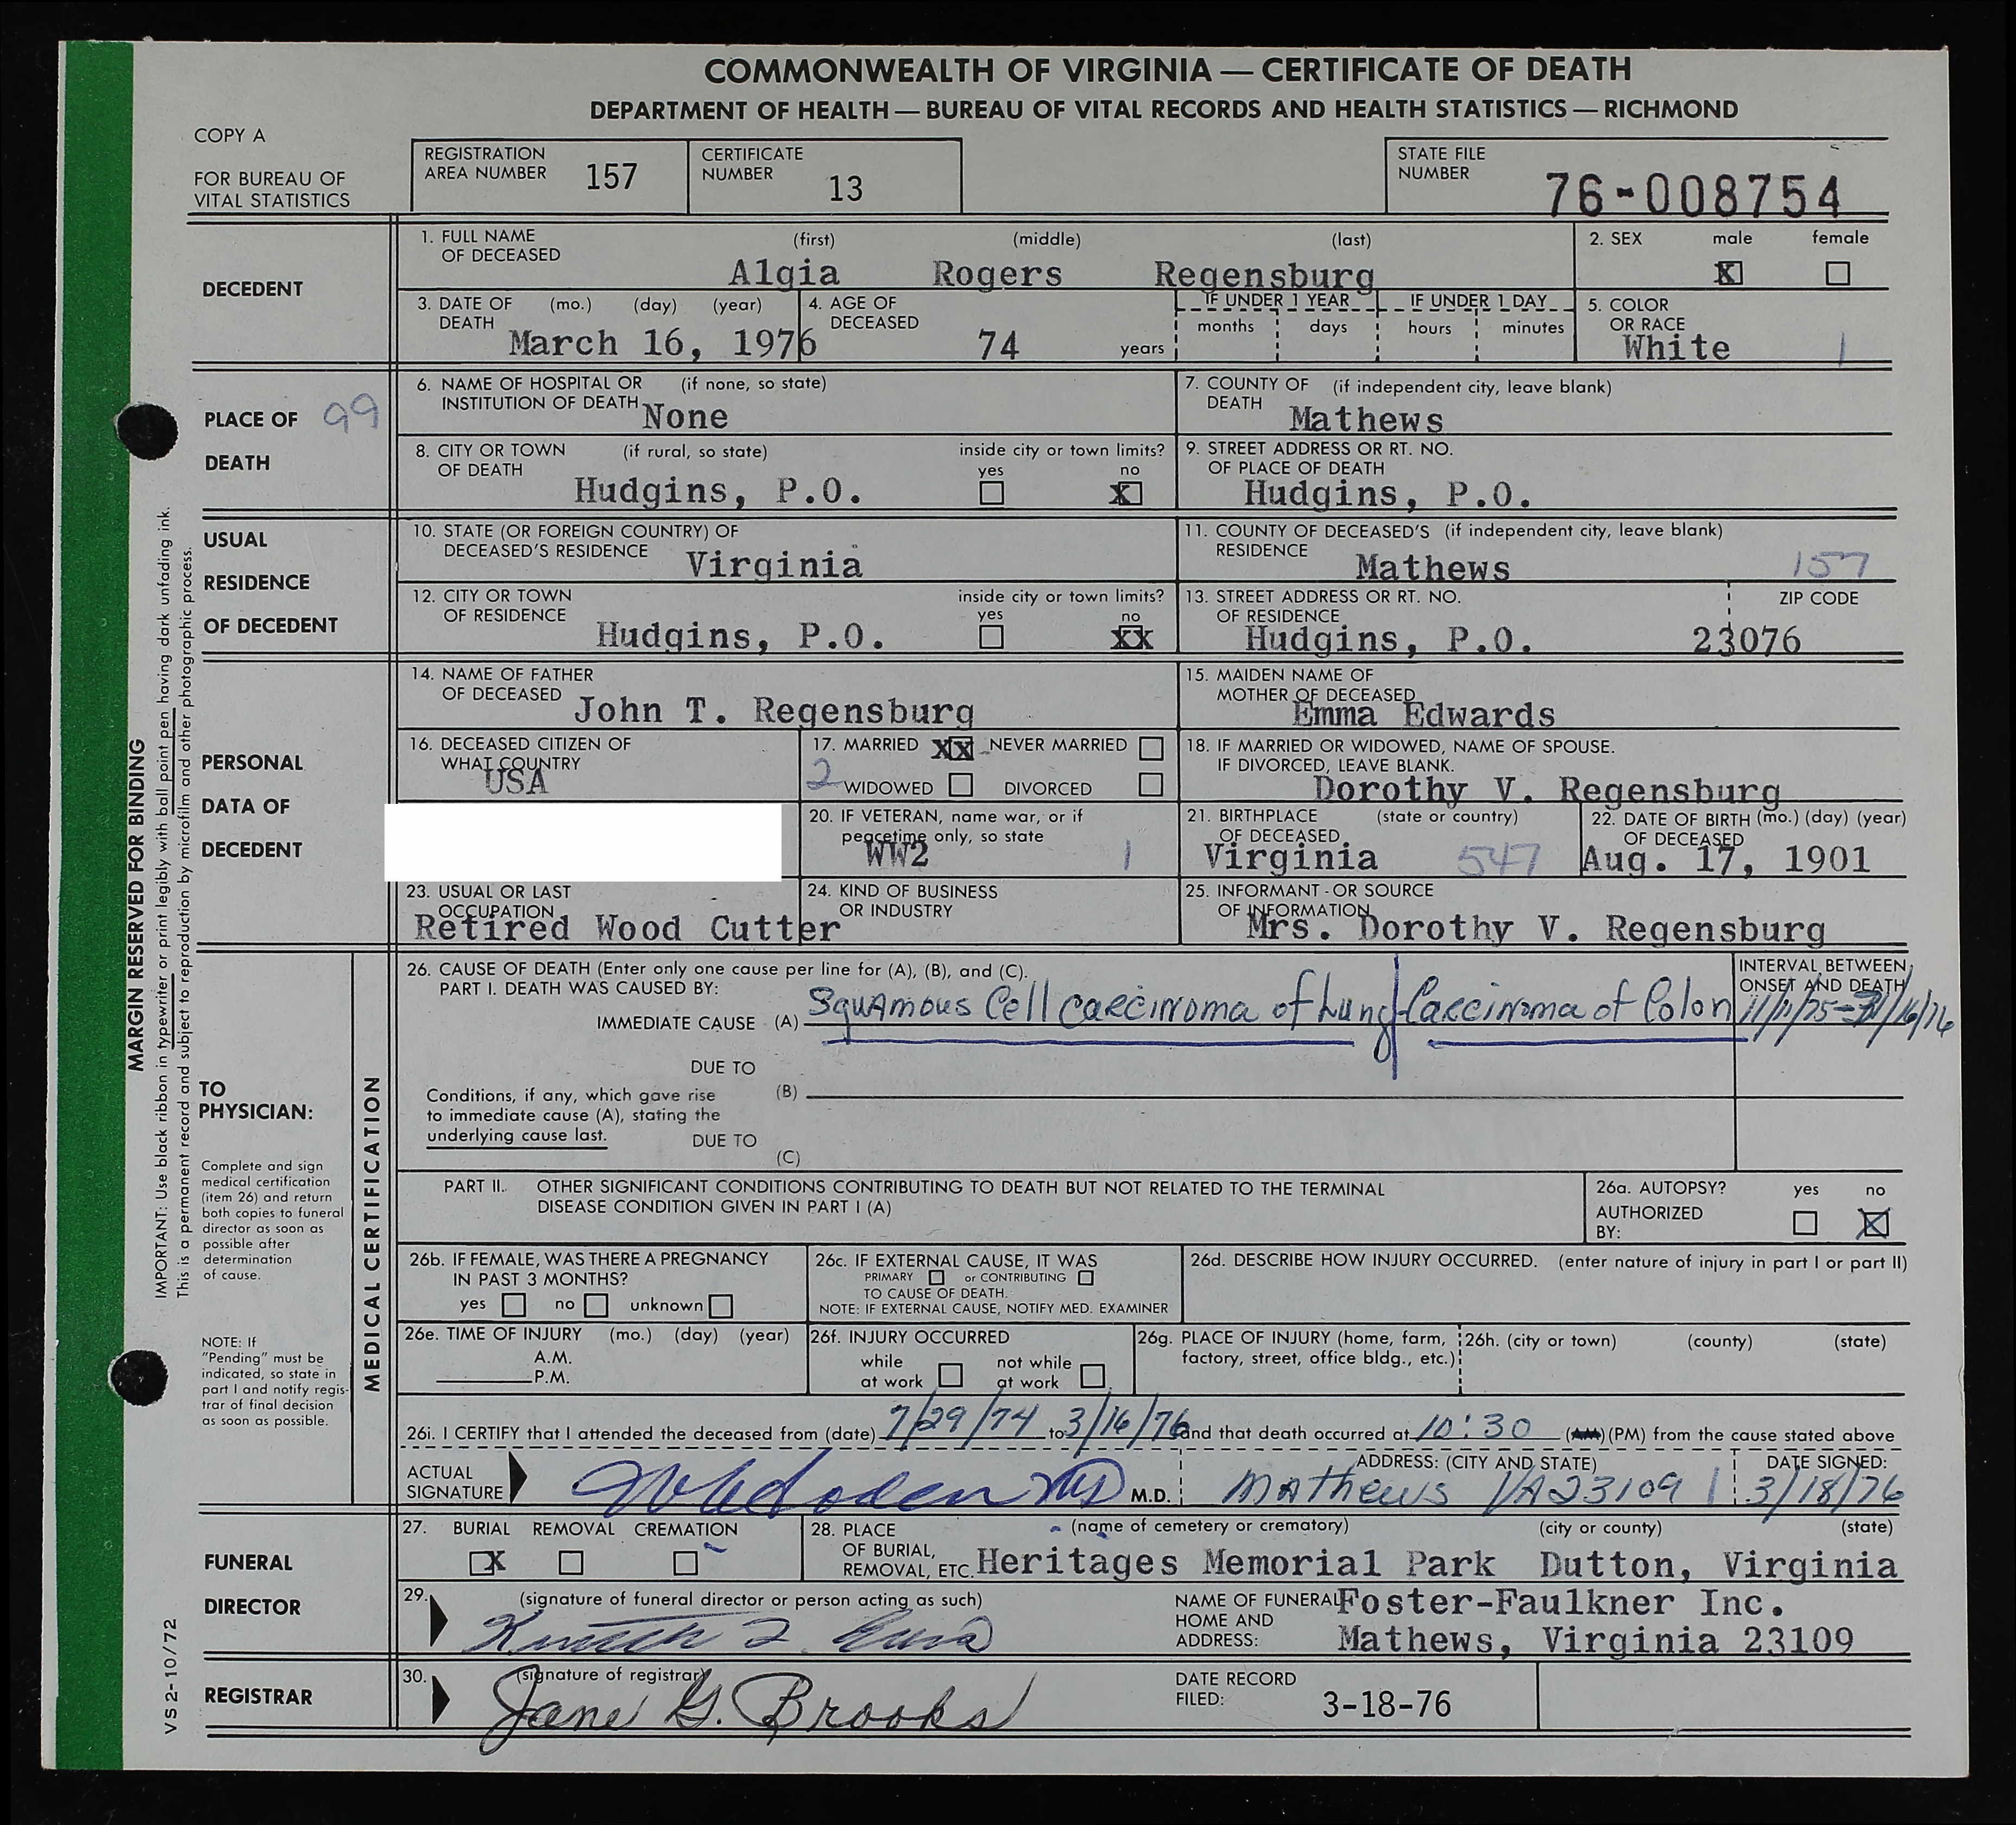 COMMONWEALTH OF VIRGINIA — CERTIFICATE OF DEATH
DEPARTMENT OF HEALTH — BUREAU OF VITAL RECORDS AND HEALTH STATISTICS — RICHMOND
COPY A
FOR BUREAU OF
VITAL STATISTICS
REGISTRATION
AREA NUMBER 157
CERTIFICATE
NUMBER 13
STATE FILE
NUMBER 76-008754
DECEDENT
1. FULL NAME (first) (middle) (last)
OF DECEASED
Algia Rogers Regensburg
2. SEX male female
X
3. DATE OF (mo.) (day) (year)
DEATH March 16, 1976
4. AGE OF
DECEASED 74 years
IF UNDER 1 YEAR
months days
IF UNDER 1 DAY
hours minutes
5. COLOR
OR RACE
White 1
PLACE OF 99
DEATH
6. NAME OF HOSPITAL OR (if none, so state)
INSTITUTION OF DEATH None
7. COUNTY OF (if independent city, leave blank)
DEATH Mathews
8. CITY OR TOWN (if rural, so state) inside city or town limits?
OF DEATH yes no
Hudgins, P.O. X
9. STREET ADDRESS OR RT. NO.
OF PLACE OF DEATH
Hudgins, P.O.
USUAL
RESIDENCE
OF DECEDENT
10. STATE (OR FOREIGN COUNTRY) OF
DECEASED'S RESIDENCE Virginia
11. COUNTY OF DECEASED'S (if independent city, leave blank)
RESIDENCE Mathews 157
12. CITY OR TOWN inside city or town limits?
OF RESIDENCE yes no
Hudgins, P.O. XX
13. STREET ADDRESS OR RT. NO. ZIP CODE
OF RESIDENCE
Hudgins, P.O. 23076
PERSONAL
DATA OF
DECEDENT
14. NAME OF FATHER
OF DECEASED John T. Regensburg
15. MAIDEN NAME OF
MOTHER OF DECEASED
Emma Edwards
16. DECEASED CITIZEN OF
WHAT COUNTRY
USA
17. MARRIED XX NEVER MARRIED
2 WIDOWED DIVORCED
18. IF MARRIED OR WIDOWED, NAME OF SPOUSE.
IF DIVORCED, LEAVE BLANK.
Dorothy V. Regensburg
20. IF VETERAN, name war, or if
peacetime only, so state
WW2 1
21. BIRTHPLACE (state or country)
OF DECEASED
Virginia 547
22. DATE OF BIRTH (mo.) (day) (year)
OF DECEASED
Aug. 17, 1901
23. USUAL OR LAST
OCCUPATION
Retired Wood Cutter
24. KIND OF BUSINESS
OR INDUSTRY
25. INFORMANT - OR SOURCE
OF INFORMATION
Mrs. Dorothy V. Regensburg
TO
PHYSICIAN:
Complete and sign
medical certification
(item 26) and return
both copies to funeral
director as soon as
possible after
determination
of cause.
NOTE: If
"Pending" must be
indicated, so state in
part I and notify regis-
trar of final decision
as soon as possible.
MEDICAL CERTIFICATION
26. CAUSE OF DEATH (Enter only one cause per line for (A), (B), and (C).
PART I. DEATH WAS CAUSED BY:
IMMEDIATE CAUSE (A) Squamous Cell Carcinoma of Lung Carcinoma of Colon
INTERVAL BETWEEN
ONSET AND DEATH
DUE TO
Conditions, if any, which gave rise (B)
to immediate cause (A), stating the
underlying cause last. DUE TO
(C)
PART II. OTHER SIGNIFICANT CONDITIONS CONTRIBUTING TO DEATH BUT NOT RELATED TO THE TERMINAL
DISEASE CONDITION GIVEN IN PART I (A)
26a. AUTOPSY? yes no
AUTHORIZED
BY: X
26b. IF FEMALE, WAS THERE A PREGNANCY
IN PAST 3 MONTHS?
yes no unknown
26c. IF EXTERNAL CAUSE, IT WAS
PRIMARY or CONTRIBUTING
TO CAUSE OF DEATH.
NOTE: IF EXTERNAL CAUSE, NOTIFY MED. EXAMINER
26d. DESCRIBE HOW INJURY OCCURRED. (enter nature of injury in part I or part II)
26e. TIME OF INJURY (mo.) (day) (year)
A.M.
P.M.
26f. INJURY OCCURRED
while not while
at work at work
26g. PLACE OF INJURY (home, farm,
factory, street, office bldg., etc.)
26h. (city or town) (county) (state)
26i. I CERTIFY that I attended the deceased from (date) 7/29/74 to 3/16/76 and that death occurred at 10:30 (AM) (PM) from the cause stated above
ACTUAL
SIGNATURE M.D.
ADDRESS: (CITY AND STATE)
Mathews VA 23109 1
DATE SIGNED:
3/18/76
FUNERAL
DIRECTOR
27. BURIAL REMOVAL CREMATION
X
28. PLACE (name of cemetery or crematory) (city or county) (state)
OF BURIAL,
REMOVAL, ETC. Heritages Memorial Park Dutton, Virginia
29. (signature of funeral director or person acting as such)
NAME OF FUNERAL Foster-Faulkner Inc.
HOME AND
ADDRESS: Mathews, Virginia 23109
REGISTRAR
30. (signature of registrar)
Jane G. Brooks
DATE RECORD
FILED: 3-18-76
MARGIN RESERVED FOR BINDING
IMPORTANT: Use black ribbon in typewriter or print legibly with ball point pen having dark unfading ink.
This is a permanent record and subject to reproduction by microfilm and other photographic process.
VS 2-10/72